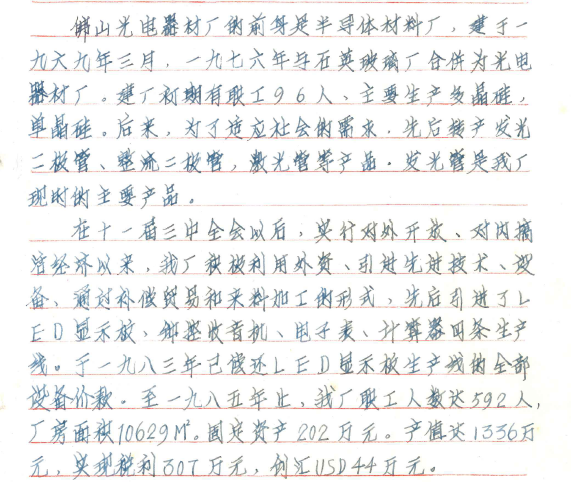 佛山光电器材厂的前身是半导体材料厂，建于一
九六九年三月，一九七六年与石英玻璃厂合併为光电
器材厂。建厂初期有职工96人、主要生产多晶硅，
单晶硅。后来，为了适应社会的需求，先后转产发光
二极管、整流二极管，激光管等产品。发光管是我厂
现时的主要产品。
在十一届三中全会以后，实行对外开放、对内搞
活经济以来，我厂积极利用外资、引进先进技术、设
备、通过补偿贸易和来料加工的形式，先后引进了L
ED显示板、钟控收音机、电子表、计算器四条生产
线。于一九八三年已偿还LED显示板生产线的全部
设备价款。至一九八五年止，我厂职工人数达592人，
厂房面积10629M²。固定资产202万元。产值达1336万
元，实现税利307万元，创汇USD44万元。